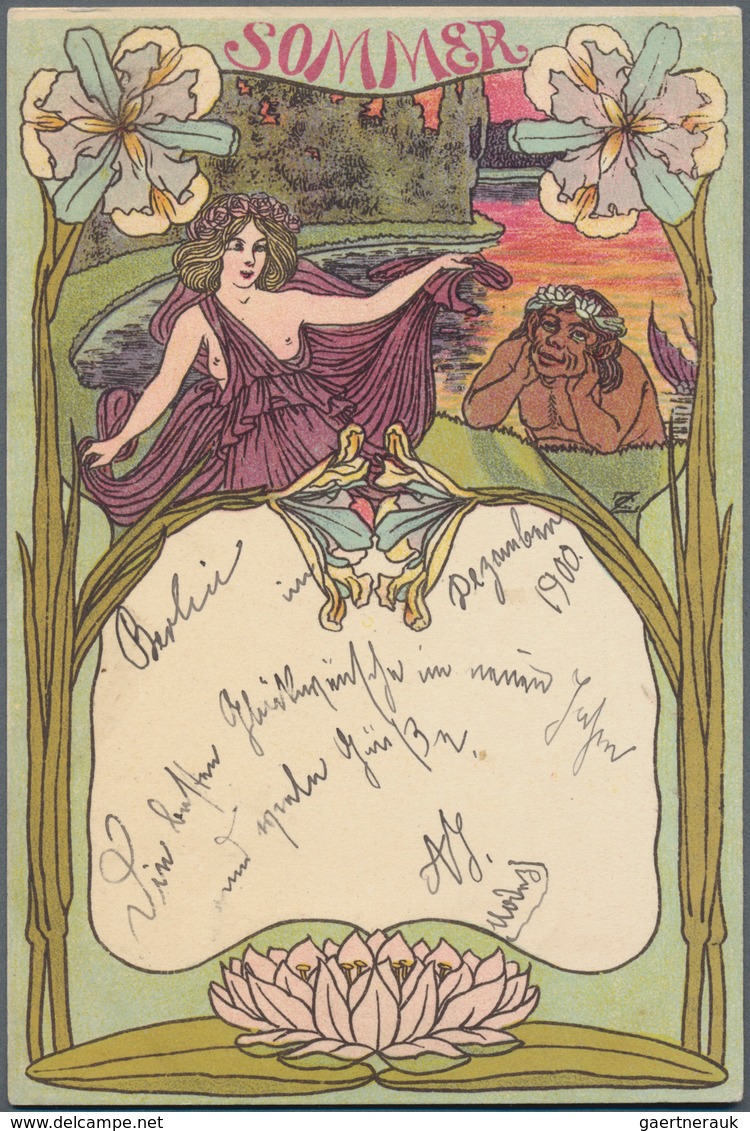 SOMMER
Berlin im Dezember
1900.
Die besten Glückwünsche im neuen Jahr
und viele Grüße.
CZ
gaertnerauk